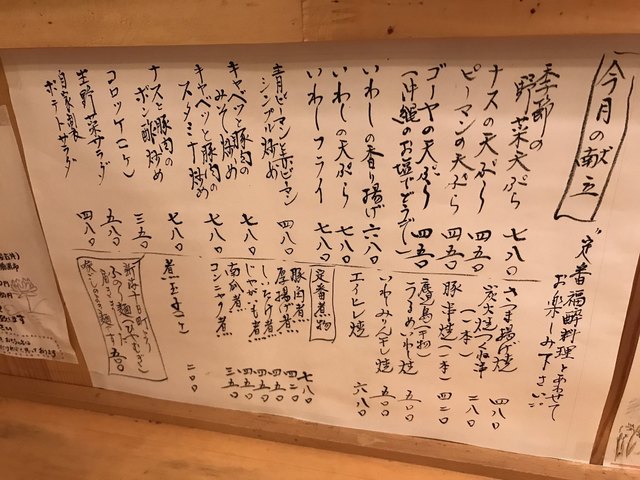 今月の献立
"定番福酔料理とあわせて
お楽しみ下さい
季節の
野菜天ぷら 七八〇
ナスの天ぷら 四五〇
ピーマンの天ぷら 四五〇
ゴーヤの天ぷら 四五〇
(沖縄のお塩でどうぞ)
いわしの香り揚げ 六八〇
いわしの天ぷら 七八〇
いわしフライ 七八〇
青ピーマンと赤ピーマン
シンプル炒め 四八〇
キャベツと豚肉の
みそ炒め 七八〇
キャベツと豚肉の
スタミナ炒め 七八〇
ナスと豚肉の
ポン酢炒め 七八〇
コロッケ(一ヶ) 三五〇
生野菜サラダ 五八〇
自家製
ポテトサラダ 四八〇
さつま揚げ焼 四八〇
炭火焼つくね串
(一本) 二八〇
豚串焼(一本) 四二〇
鹿児島(干物)
うるめいわし焼 五〇〇
いわしみりん干し焼 五〇〇
エイヒレ焼 六八〇
定番煮物
豚肉煮 七八〇
厚揚げ煮 四二〇
しいたけ煮 四五〇
じゃがいも煮 四五〇
南瓜煮 三五〇
コンニャク煮 三五〇
煮玉子 二〇〇